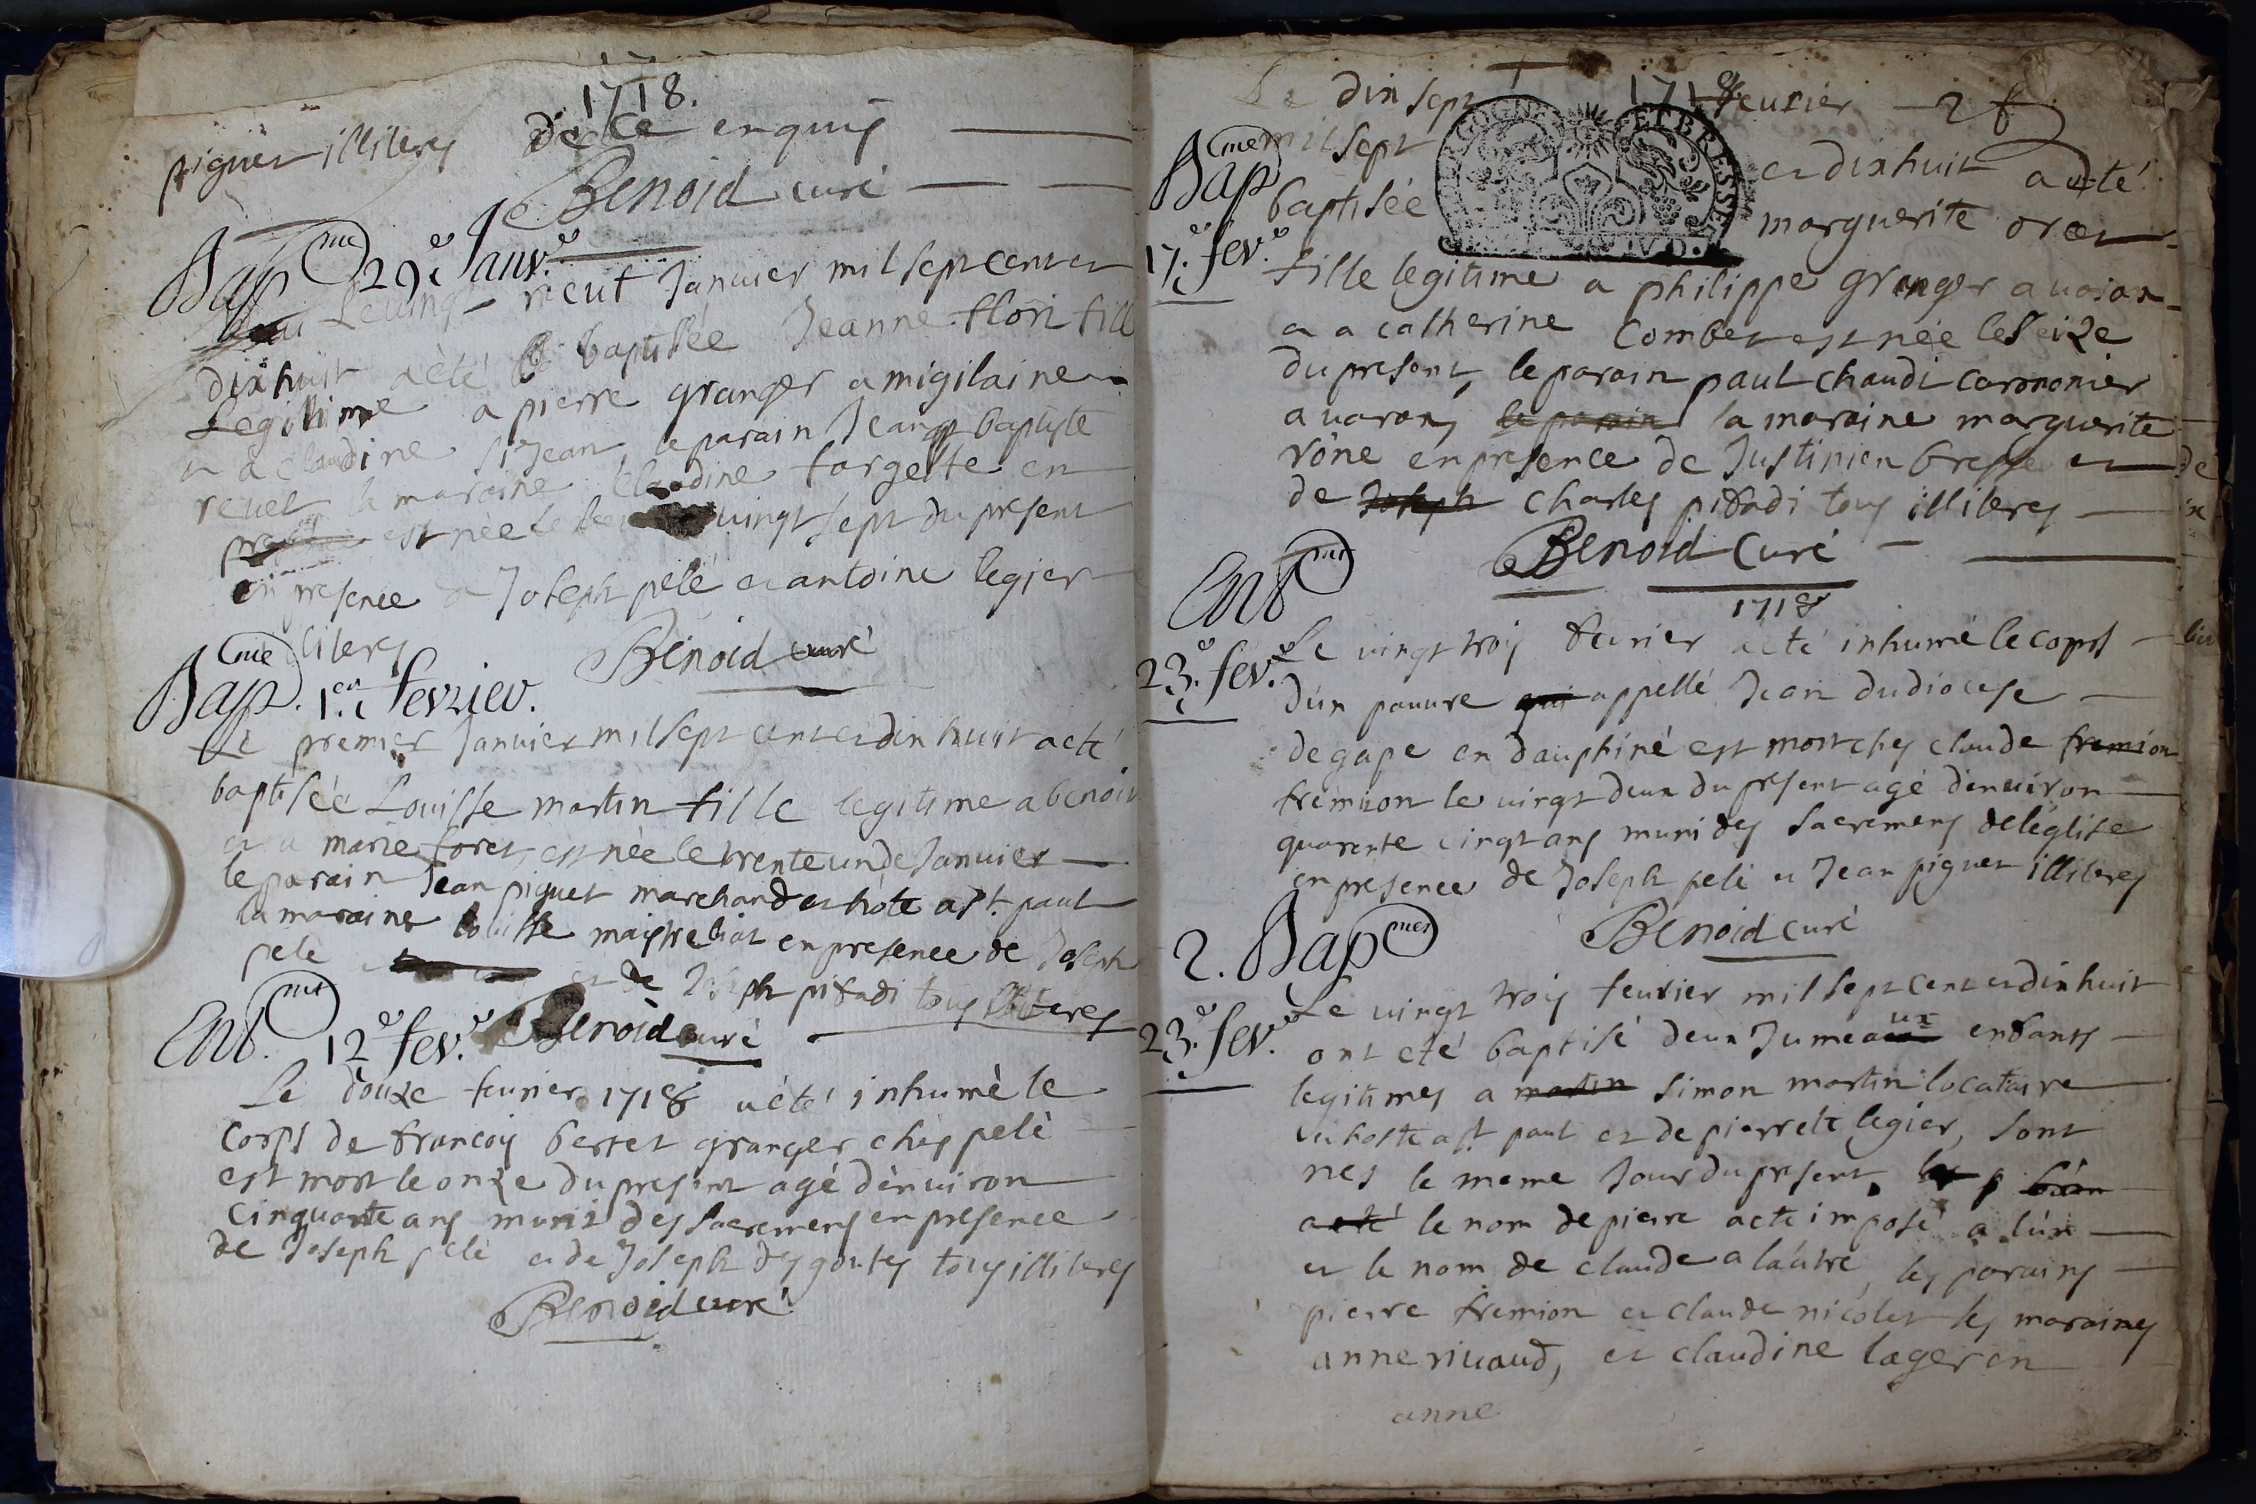 1718.
piguet illiteres de ce enquis
Benoid curé
Bap me 29e Janve
Le vingt neuf Janvier mil sept cent et
dixhuit a été baptisée Jeanne flori fill
Legitime a pierre granger a migilaine
et a claudine St Jean, le parain Jean baptiste
revet la maraine Claudine fargette en
est née le vingt sept du present
en presence de Joseph pelé et antoine legier
literes Benoid curé
Bap me. 1er fevrier.
Le premier Janvier mil sept cent et dix huit a eté
baptisée Louisse martin fille legitime a benoit
et a marie foret, est née le trente un de Janvier
le parain Jean piguet marchand et hôte a St. paul
la maraine louisse maistrebiat en presence de Joseph
pele et de Joseph pifadi tous illiteres
Benoid curé
Ent. met 12e fev.e
Le douze fevrier 1718 a été inhumé le
corps de francois bertet granger ches pelé
est mort le onze du present agé d'enuiron
cinquante ans muni des sacremens en presence
de Joseph pelé et de Joseph des goutes tous illiteres
Benoid curé
1718
Le dix sept feurier 28
Bap me
mil sept et dixhuit a eté
baptisée marguerite
17.e fev.e
fille legitime a philippe granger a varan
et a catherine Combet est née le Seize
du present, le parain paul chaudi
a varan, le parain la maraine marguerite
rône en presence de Justinien bresse et
de Joseph Charles pifadi tous illiteres
Benoid Curé
Ent met
1718
23.e fev.e
Le vingt trois feurier a eté inhumé le corps
d'un pauure qui appellé Jean du diocese
de gape en dauphiné est mort ches claude fremion
fremion le vingt deux du present agé d'enuiron
quarente cinqt ans muni des Sacremens de l'eglise
en presence de Joseph pelé et Jean piguet illiteres
Benoid curé
2. Bap mes
23.e fev.e
Le vingt trois feurier mil sept cent et dix huit
ont eté baptisé deux Jumeaux enfants
legitimes a martin Simon martin locataire
a St paul et de pierrette legier, sont
nés le meme Jour du present,
a eté le nom de pierre a ete imposé a l'un
et le nom de claude a l'autre, les parains
pierre fremion et claude nicolet les maraines
anne rivaud, et claudine lageren
anne